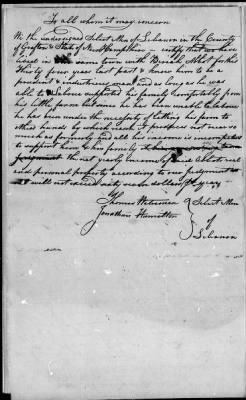 To all whom it may concern
We the undersigned Select Men of Lebanon in the County
of Grafton & State of New Hampshire - certify that we have
lived in the same town with Beriah Abbot for the
thirty four year last past & knew him to be a
prudent & industrious man and so long as he was
able to labour supported his family comfortably from
his little farm but since he has been unable to labour
he has been under the necessity of letting his farm to
other hands by which mean profits not near so
much as formerly and all his income is
to support him & his family
judgement the net yearly income of said Abbots real
and personal property according to our judgement
will not exceed sixty seven dollars
Thomas Waterman
Jonathan Hamilton
Select Men
of
Lebanon